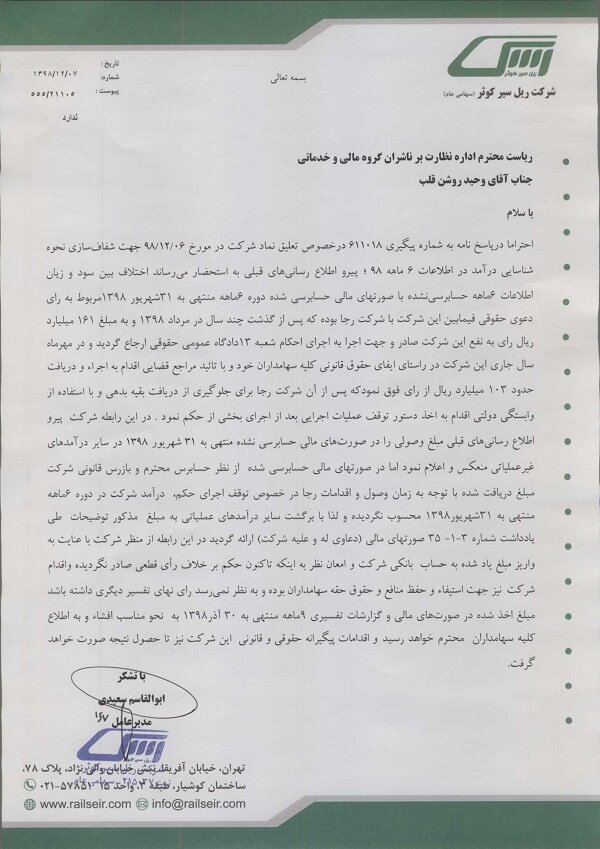 ریل سیر کوثر
شرکت ریل سیر کوثر (سهامی عام)
بسمه تعالی
تاریخ :
۱۳۹۸/۱۲/۰۷
شماره:
۵۵۵/۲۱۱۰۵
پیوست :
ندارد
ریاست محترم اداره نظارت بر ناشران گروه مالی و خدماتی
جناب آقای وحید روشن قلب
با سلام
احتراما درپاسخ نامه به شماره پیگیری ۶۱۱۰۱۸ درخصوص تعلیق نماد شرکت در مورخ ۹۸/۱۲/۰۶ جهت شفاف‌سازی نحوه
شناسایی درآمد در اطلاعات ۶ ماهه ۹۸ ؛ پیرو اطلاع رسانی‌های قبلی به استحضار می‌رساند اختلاف بین سود و زیان
اطلاعات ۶ماهه حسابرسی‌نشده با صورتهای مالی حسابرسی شده دوره ۶ماهه منتهی به ۳۱شهریور ۱۳۹۸مربوط به رای
دعوی حقوقی فیمابین این شرکت با شرکت رجا بوده که پس از گذشت چند سال در مرداد ۱۳۹۸ و به مبلغ ۱۶۱ میلیارد
ریال رای به نفع این شرکت صادر و جهت اجرا به اجرای احکام شعبه ۱۳دادگاه عمومی حقوقی ارجاع گردید و در مهرماه
سال جاری این شرکت در راستای ایفای حقوق قانونی کلیه سهامداران خود و با تائید مراجع قضایی اقدام به اجراء و دریافت
حدود ۱۰۳ میلیارد ریال از رای فوق نمودکه پس از آن شرکت رجا برای جلوگیری از دریافت بقیه بدهی و با استفاده از
وابستگی دولتی اقدام به اخذ دستور توقف عملیات اجرایی بعد از اجرای بخشی از حکم نمود . در این رابطه شرکت پیرو
اطلاع رسانی‌های قبلی مبلغ وصولی را در صورت‌های مالی حسابرسی نشده منتهی به ۳۱ شهریور ۱۳۹۸ در سایر درآمدهای
غیرعملیاتی منعکس و اعلام نمود اما در صورتهای مالی حسابرسی شده از نظر حسابرس محترم و بازرس قانونی شرکت
مبلغ دریافت شده با توجه به زمان وصول و اقدامات رجا در خصوص توقف اجرای حکم، درآمد شرکت در دوره ۶ماهه
منتهی به ۳۱شهریور۱۳۹۸ محسوب نگردیده و لذا با برگشت سایر درآمدهای عملیاتی به مبلغ مذکور توضیحات طی
یادداشت شماره ۳-۱- ۳۵ صورتهای مالی (دعاوی له و علیه شرکت) ارائه گردید در این رابطه از منظر شرکت با عنایت به
واریز مبلغ یاد شده به حساب بانکی شرکت و امعان نظر به اینکه تاکنون حکم بر خلاف رأی قطعی صادر نگردیده واقدام
شرکت نیز جهت استیفاء و حفظ منافع و حقوق حقه سهامداران بوده و به نظر نمی‌رسد رای نهای تفسیر دیگری داشته باشد
مبلغ اخذ شده در صورت‌های مالی و گزارشات تفسیری ۹ماهه منتهی به ۳۰ آذر۱۳۹۸ به نحو مناسب افشاء و به اطلاع
کلیه سهامداران محترم خواهد رسید و اقدامات پیگیرانه حقوقی و قانونی این شرکت نیز تا حصول نتیجه صورت خواهد
گرفت.
با تشکر
ابوالقاسم سعیدی
مدیرعامل
تهران، خیابان آفریقا، نبش خیابان والی نژاد، پلاک ۷۸،
ساختمان کوشیار، طبقه ۴، واحد ۱۵ ۵۷۸۵۱-۰۲۱
www.railseir.com info@railseir.com